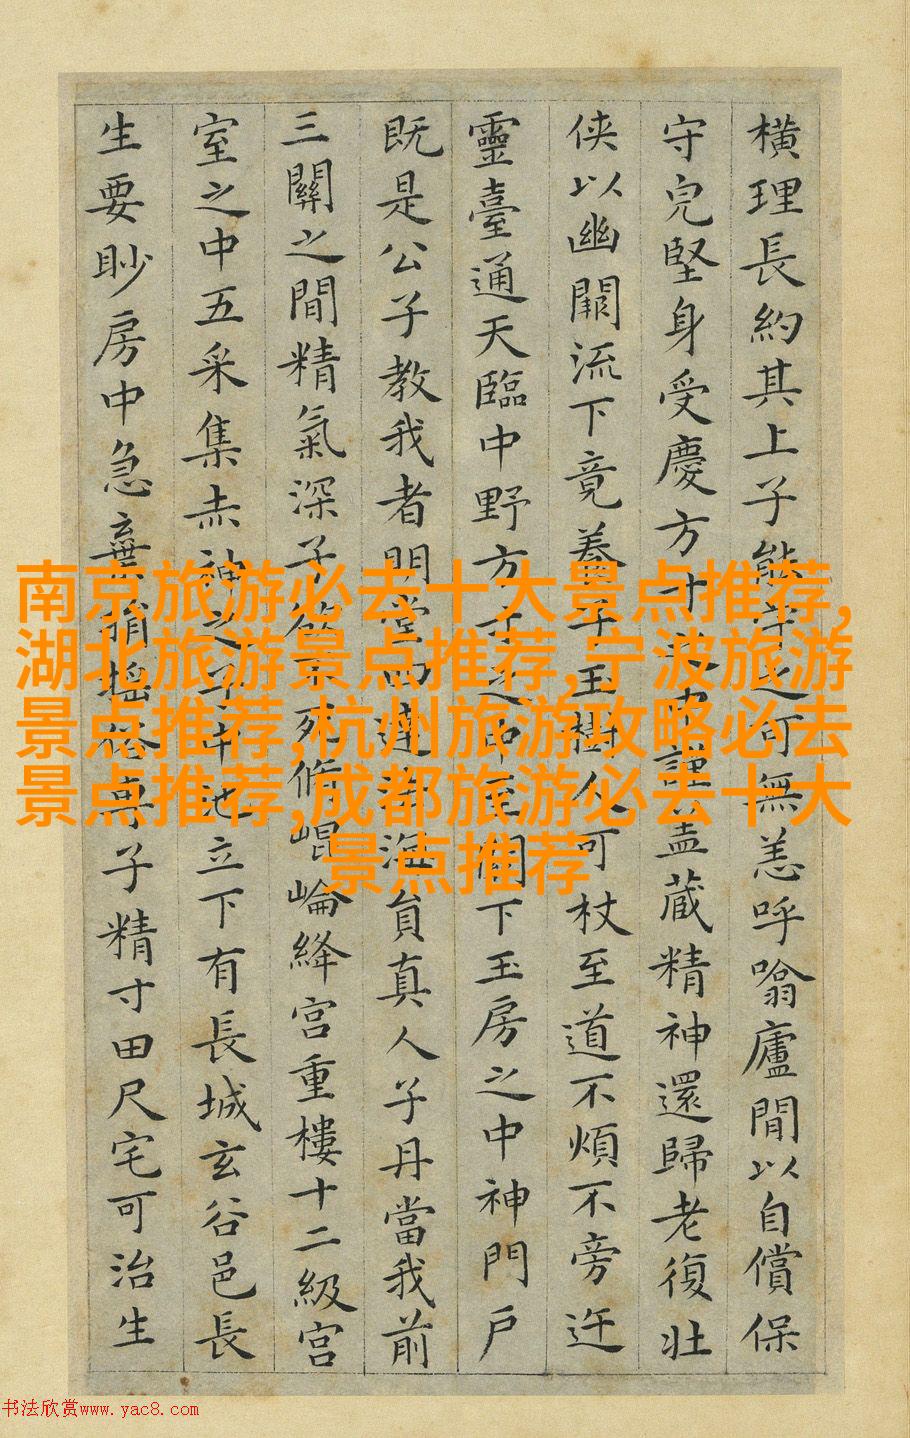 橫理長約其上子能守之可無恙呼噏廬間以自償保
守皃堅身受慶方寸之中謹蓋藏精神還歸老復壯
俠以幽闕流下竟養子玉樹令可杖至道不煩不旁迕
靈臺通天臨中野方寸之中至關下玉房之中神門戶
既是公子教我者明堂四達法海員真人子丹當我前
三關之間精氣深子欲不死脩崐崘絳宮重樓十二級宮
室之中五采集赤神之子中池立下有長城玄谷邑長
生要眇房中急棄捐搖俗專子精寸田尺宅可治生
南京旅游必去十大景点推荐,
湖北旅游景点推荐,宁波旅游
景点推荐,杭州旅游攻略必去
景点推荐,成都旅游必去十大
景点推荐
书法欣赏www.yac8.com